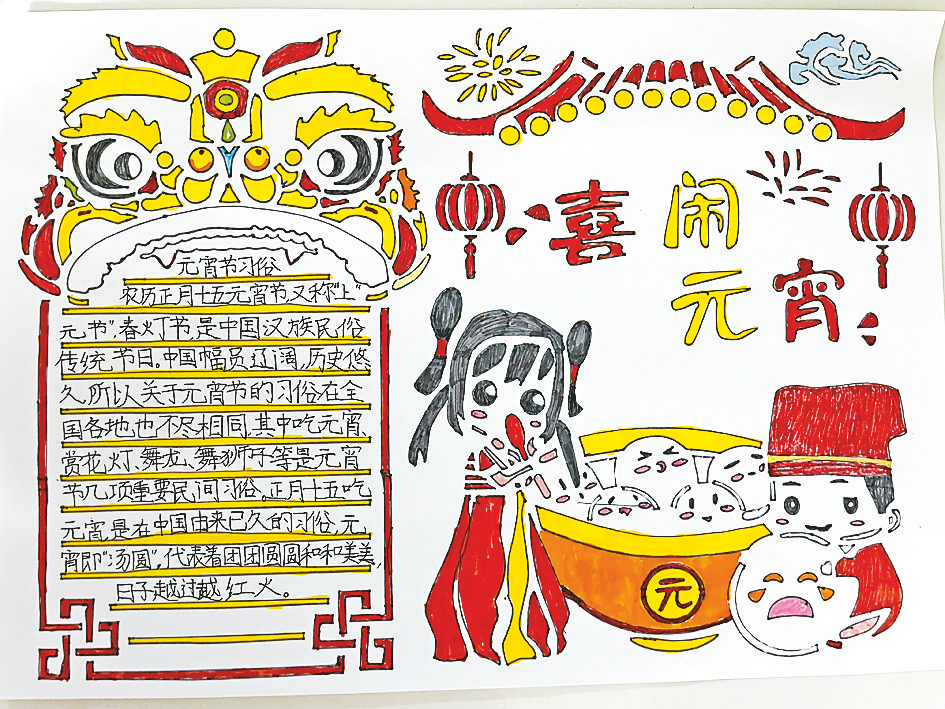 元宵节习俗
农历正月十五元宵节,又称"上
元节",春灯节,是中国汉族民俗
传统节日。中国幅员辽阔,历史悠
久,所以关于元宵节的习俗在全
国各地也不尽相同,其中吃元宵、
赏花灯、舞龙、舞狮子等是元宵
节几项重要民间习俗。正月十五吃
元宵,是在中国由来已久的习俗,元
宵即"汤圆",代表着团团圆圆和和美美,
日子越过越红火。
喜闹
元宵
元